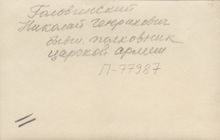 Головинский
Николай Генрихович
бывш. полковник
царской армии
П-77987